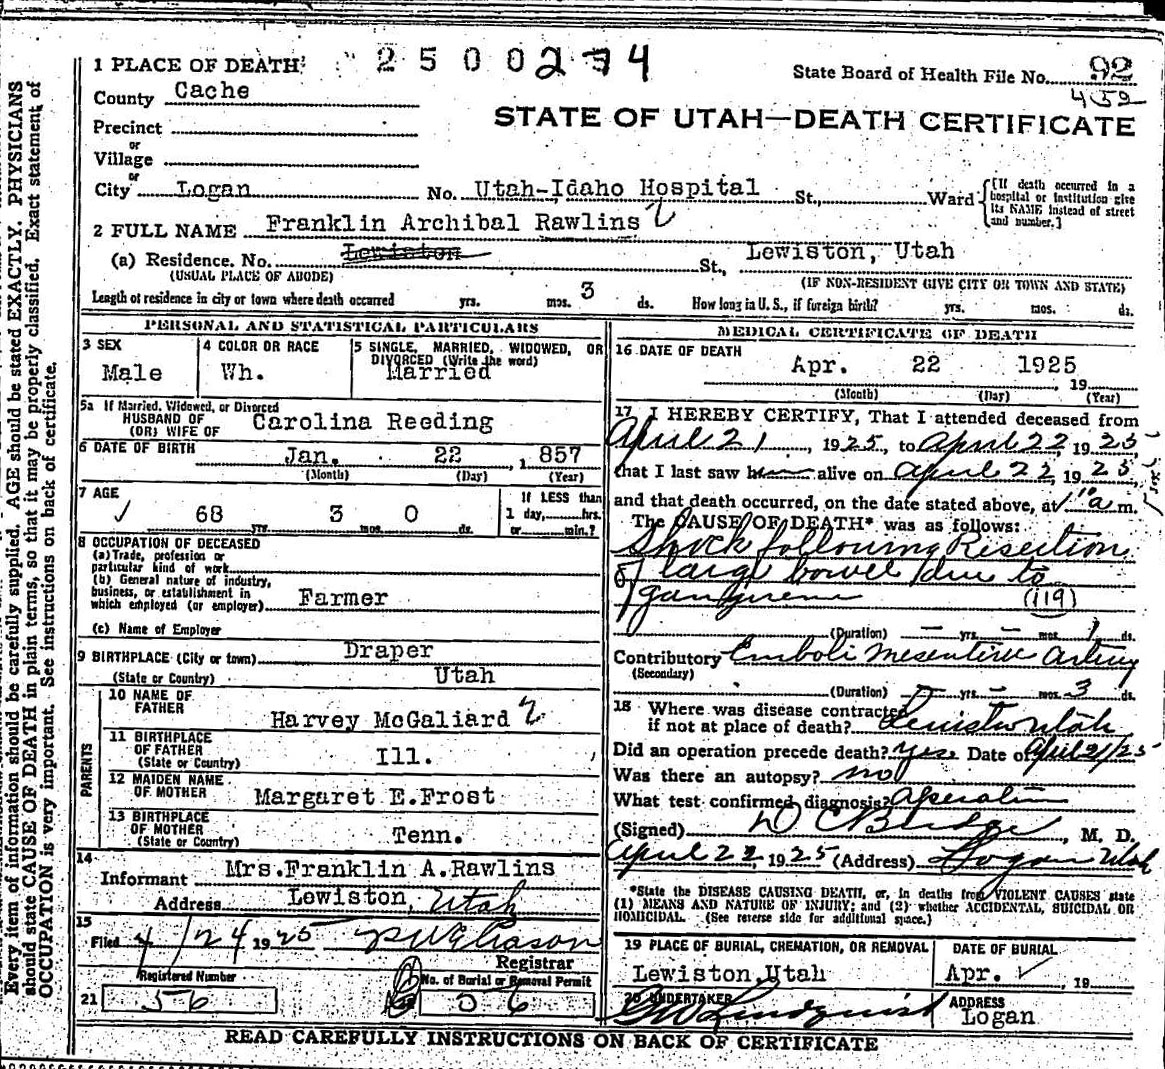 1 PLACE OF DEATH 2 5 0 0 2 3 4
State Board of Health File No. 92
452
County Cache
STATE OF UTAH—DEATH CERTIFICATE
Precinct
or
Village
or
City Logan No. Utah-Idaho Hospital St., Ward
[If death occurred in a hospital or institution give its NAME instead of street and number.]
2 FULL NAME Franklin Archibal Rawlins
(a) Residence. No. Lewiston St., Lewiston, Utah
(USUAL PLACE OF ABODE) (IF NON-RESIDENT GIVE CITY OR TOWN AND STATE)
Length of residence in city or town where death occurred yrs. mos. 3 ds. How long in U. S., if foreign birth? yrs. mos. ds.
PERSONAL AND STATISTICAL PARTICULARS
3 SEX
Male
4 COLOR OR RACE
Wh.
5 SINGLE, MARRIED, WIDOWED, OR
DIVORCED (Write the word)
Married
5a If Married, Widowed, or Divorced
HUSBAND OF
(OR) WIFE OF Carolina Reeding
6 DATE OF BIRTH Jan. 22, 1857
(Month) (Day) (Year)
7 AGE
68 yrs. 3 mos. 0 ds.
If LESS than
1 day, hrs.
or min.?
8 OCCUPATION OF DECEASED
(a) Trade, profession or
particular kind of work
(b) General nature of industry,
business, or establishment in
which employed (or employer) Farmer
(c) Name of Employer
9 BIRTHPLACE (City or town) Draper
(State or Country) Utah
PARENTS
10 NAME OF
FATHER Harvey McGaliard
11 BIRTHPLACE
OF FATHER
(State or Country) Ill.
12 MAIDEN NAME
OF MOTHER Margaret E.Frost
13 BIRTHPLACE
OF MOTHER
(State or Country) Tenn.
14
Informant Mrs.Franklin A.Rawlins
Address Lewiston, Utah
15
Filed 4/24 1925
Registrar
Registered Number
No. of Burial or Removal Permit
21 56 06
MEDICAL CERTIFICATE OF DEATH
16 DATE OF DEATH
Apr. 22 1925, 19
(Month) (Day) (Year)
17 I HEREBY CERTIFY, That I attended deceased from
April 21, 1925, to April 22, 1925
that I last saw him alive on April 22, 1925
and that death occurred, on the date stated above, at 1 10 a m.
The CAUSE OF DEATH* was as follows:
Shock following Resection
of large bowel due to
gangrene (119)
(Duration) – yrs. – mos. 1 ds.
Contributory Emboli Mesenteric artery
(Secondary)
(Duration) – yrs. – mos. 3 ds.
18 Where was disease contracted
if not at place of death? Lewiston Utah
Did an operation precede death? Yes Date of April 21/25
Was there an autopsy? no
What test confirmed diagnosis? Operation
(Signed) D C Budge, M. D.
April 22, 1925 (Address) Logan Utah
*State the DISEASE CAUSING DEATH, or, in deaths from VIOLENT CAUSES state
(1) MEANS AND NATURE OF INJURY; and (2) whether ACCIDENTAL, SUICIDAL OR
HOMICIDAL. (See reverse side for additional space.)
19 PLACE OF BURIAL, CREMATION, OR REMOVAL
Lewiston,Utah
DATE OF BURIAL
Apr. 19
20 UNDERTAKER
Lindquist
ADDRESS
Logan
READ CAREFULLY INSTRUCTIONS ON BACK OF CERTIFICATE
Every item of information should be carefully supplied. AGE should be stated EXACTLY. PHYSICIANS
should state CAUSE OF DEATH in plain terms, so that it may be properly classified. Exact statement of
OCCUPATION is very important. See instructions on back of certificate.